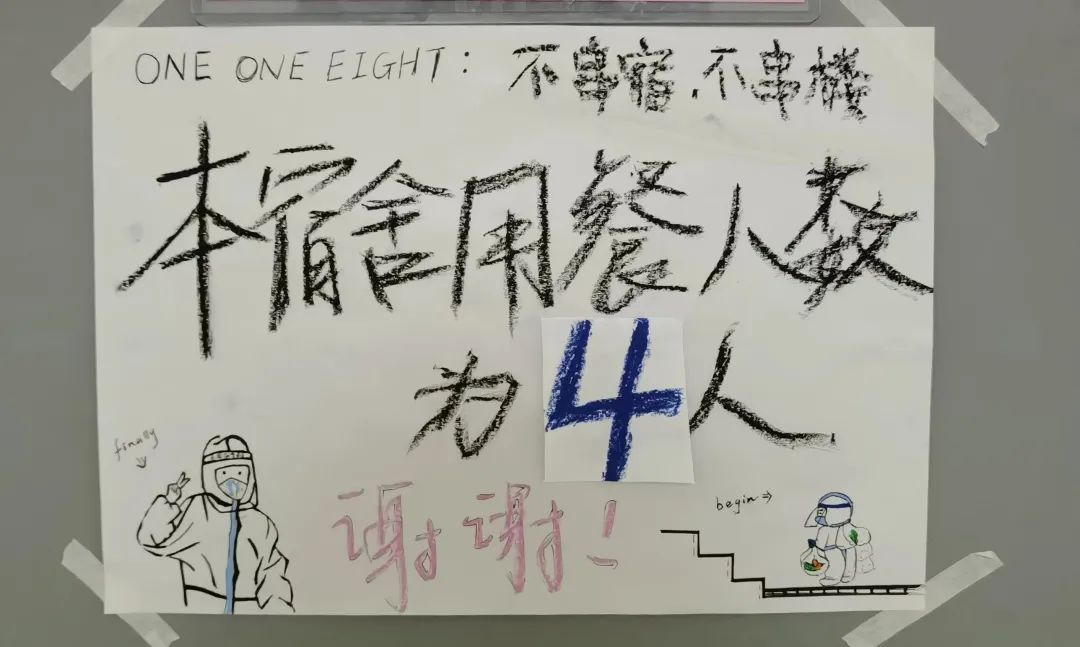 ONE ONE EIGHT: 不串宿.不串楼
本宿舍用餐人数
为4人
finally
谢谢!
begin